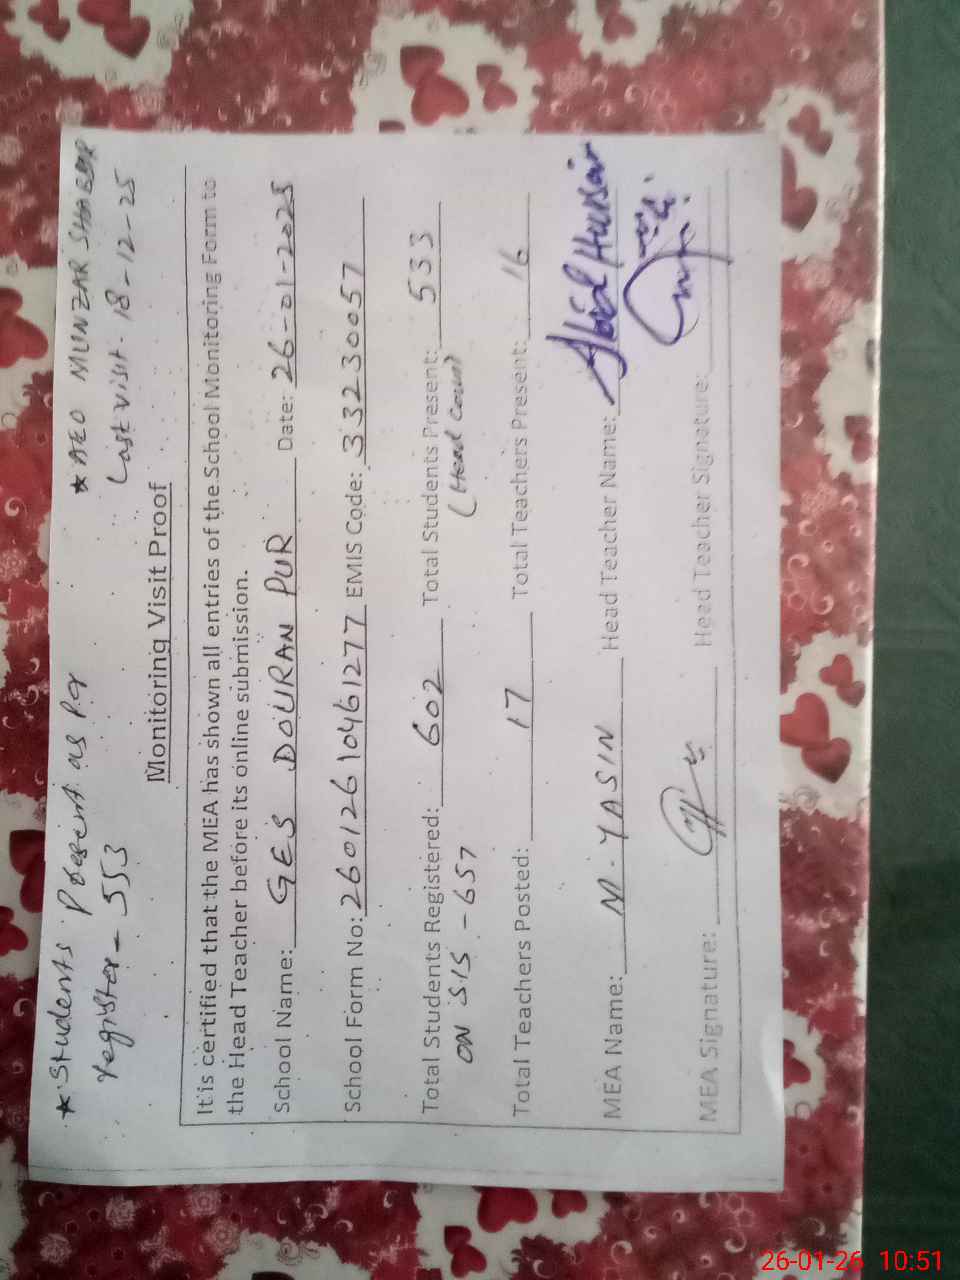 * Students Present as per
register - 553
* AEO MUNZAR SHABBIR
Last visit - 18-12-25
Monitoring Visit Proof
It is certified that the MEA has shown all entries of the School Monitoring Form to
the Head Teacher before its online submission.
School Name: GES DOURAN PUR Date: 26-01-2025
School Form No: 26012610461277 EMIS Code: 33230057
Total Students Registered: 602 Total Students Present: 533
ON SIS - 657 (Head Count)
Total Teachers Posted: 17 Total Teachers Present: 16
MEA Name: M. YASIN Head Teacher Name: Abid Hussain
MEA Signature: Head Teacher Signature:
26-01-26 10:51